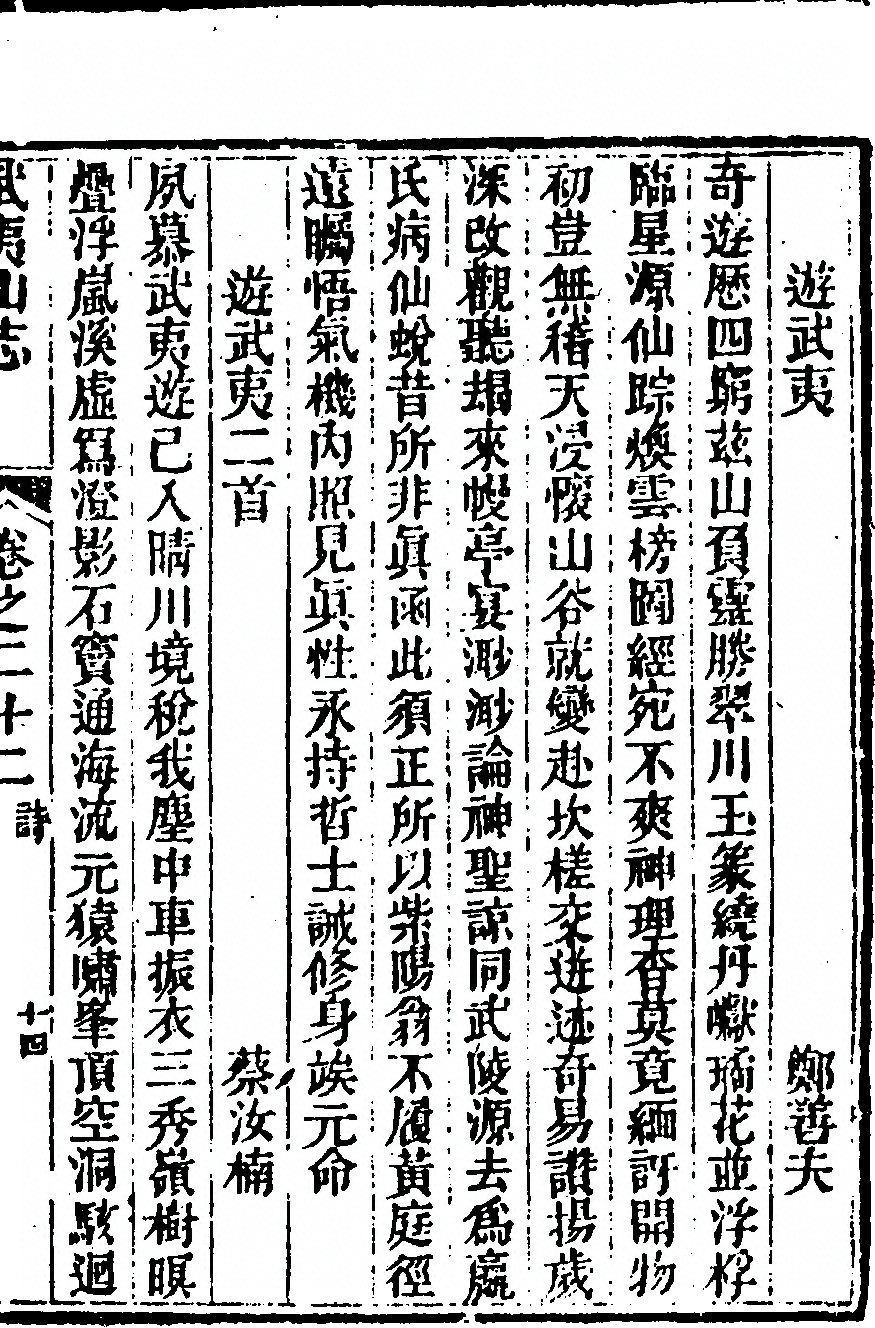 遊武夷　鄭善夫
奇遊歷四窮茲山負靈勝翠川玉篆繞丹巘璚花並浮桴
臨星源仙踪煥雲榜圖經宛不爽神理杳莫竟緬訝開物
初豈無稽天浸懷山谷就變赴坎槎來遊迹奇易讚揚歲
深改觀聽朅來幔亭宴渺渺論神聖諒同武陵源去為嬴
氏病仙蛻昔所非眞函此須正所以紫陽翁不履黃庭徑
遠矚悟氣機內照見眞性永持哲士誠修身竢元命
遊武夷二首　蔡汝楠
夙慕武夷遊已入晴川境稅我塵中車振衣三秀嶺樹暝
疊浮嵐溪虛寫澄影石竇通海流元猿嘯峯頂空洞駭迴
武夷山志　卷之二十二　詩　十四